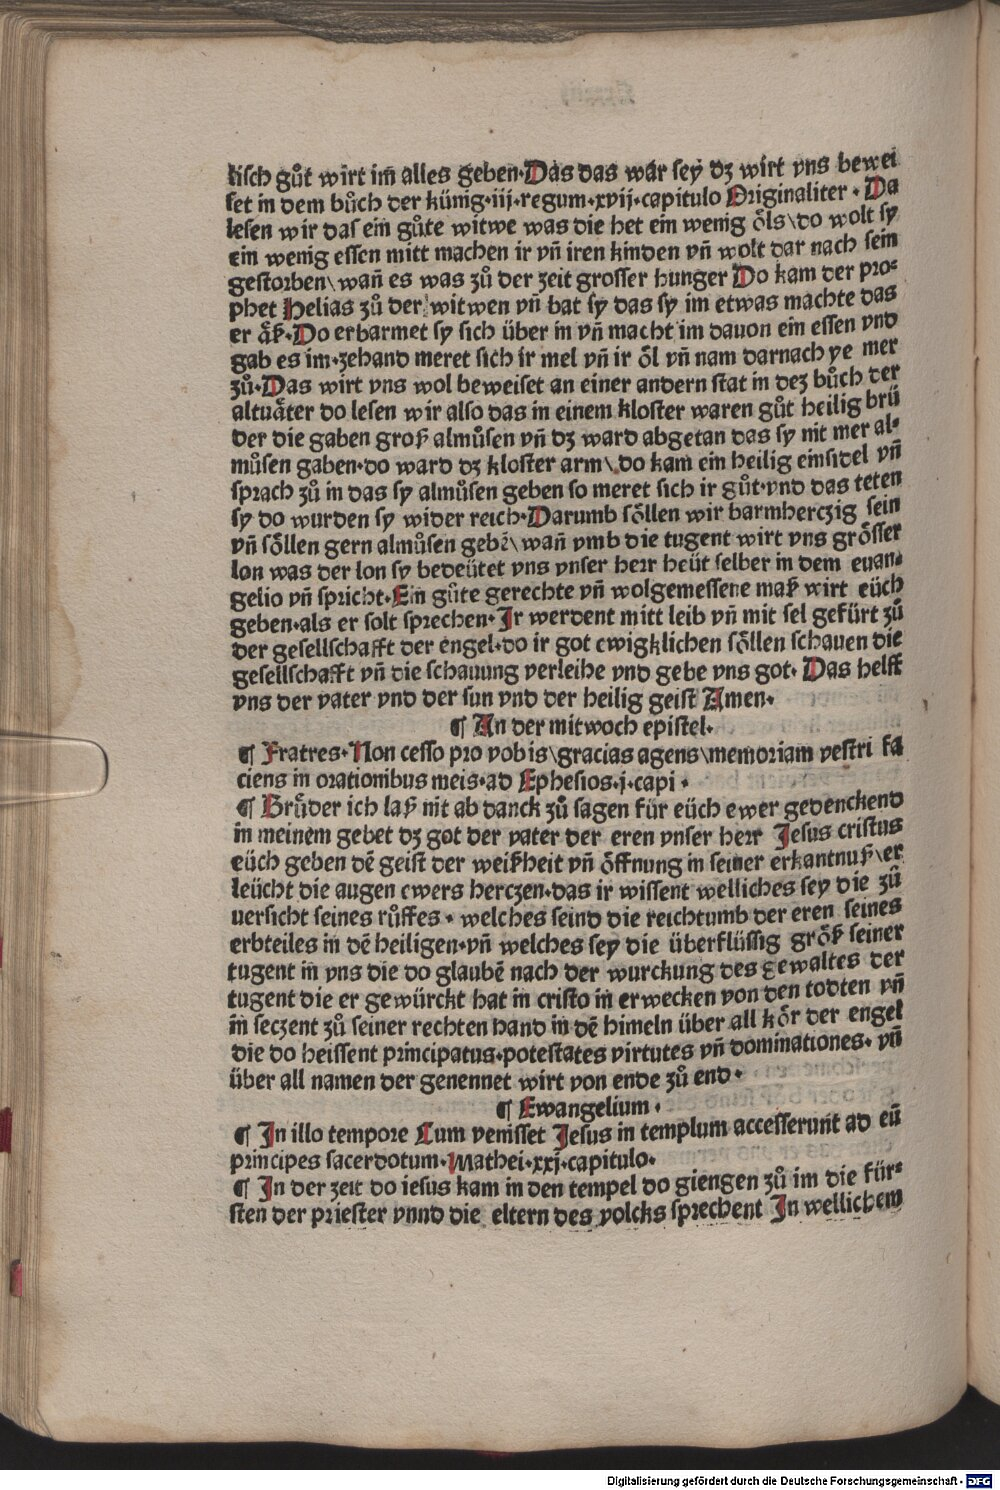 lisch gůt wirt im̄ alles geben·Das das war sey dz wirt vns bewei
set in dem bůch der künig·iij·regum·xvij·capitulo Originaliter · Da
lesen wir das ein gůte witwe was die het ein wenig öls\do wolt sy
ein wenig essen mitt machen ir vn̄ iren kinden vn̄ wolt dar nach sein
gestorben\wan̄ es was zů der zeit grosser hunger Do kam der pro⸗
phet Helias zů der witwen vn̄ bat sy das sy im etwas machte das
er äß·Do erbarmet sy sich über in vn̄ macht im dauon ein essen vnd
gab es im·zehand meret sich ir mel vn̄ ir öl vn̄ nam darnach ye mer
zů·Das wirt vns wol beweiset an einer andern stat in dez bůch der
altuäter do lesen wir also das in einem kloster waren gůt heilig brü
der die gaben groß almůsen vn̄ dz ward abgetan das sy nit mer al⸗
můsen gaben·do ward dz kloster arm\do kam ein heilig einsidel vn̄
sprach zů in das sy almůsen geben so meret sich ir gůt·vnd das teten
sy do wurden sy wider reich·Darumb söllen wir barmherczig sein
vn̄ söllen gern almůsen gebē\wan̄ vmb die tugent wirt vns grösser
lon was der lon sy bedeütet vns vnser herr heüt selber in dem euan⸗
gelio vn̄ spricht·Ein gůte gerechte vn̄ wolgemessene maß wirt eüch
geben·als er solt sprechen·Ir werdent mitt leib vn̄ mit sel gefürt zů
der gesellschafft der engel·do ir got ewigklichen söllen schauen die
gesellschafft vn̄ die schauung verleihe vnd gebe vns got· Das helff
vns der vater vnd der sun vnd der heilig geist Amen·
¶ An der mitwoch epistel·
¶ Fratres·Non cesso pro vobis\gracias agens\memoriam vestri fa
ciens in orationibus meis·ad Ephesios·j·capi ·
¶ Brůder ich laß nit ab danck zů sagen für eüch ewer gedenckend
in meinem gebet dz got der vater der eren vnser herr Jesus cristus
eüch geben dē geist der weißheit vn̄ öffnung in seiner erkantnuß\er
leücht die augen ewers herczen·das ir wissent welliches sey die zů
uersicht seines růffes · welches seind die reichtumb der eren seines
erbteiles in dē heiligen·vn̄ welches sey die überflüssig größ seiner
tugent in vns die do glaubē nach der wurckung des gewaltes der
tugent die er gewürckt hat in cristo in erwecken von den todten vn̄
in seczent zů seiner rechten hand in dē himeln über all kör der engel
die do heissent principatus·potestates virtutes vn̄ dominationes· vn̄
über all namen der genennet wirt von ende zů end·
¶ Ewangelium ·
¶ In illo tempore Cum venisset Jesus in templum accesserunt ad eū
principes sacerdotum·Mathei·xxj·capitulo·
¶ In der zeit do iesus kam in den tempel do giengen zů im die für⸗
sten der priester vnnd die eltern des volcks sprechent In wellichem
Digitalisierung gefördert durch die Deutsche Forschungsgemeinschaft - DFG